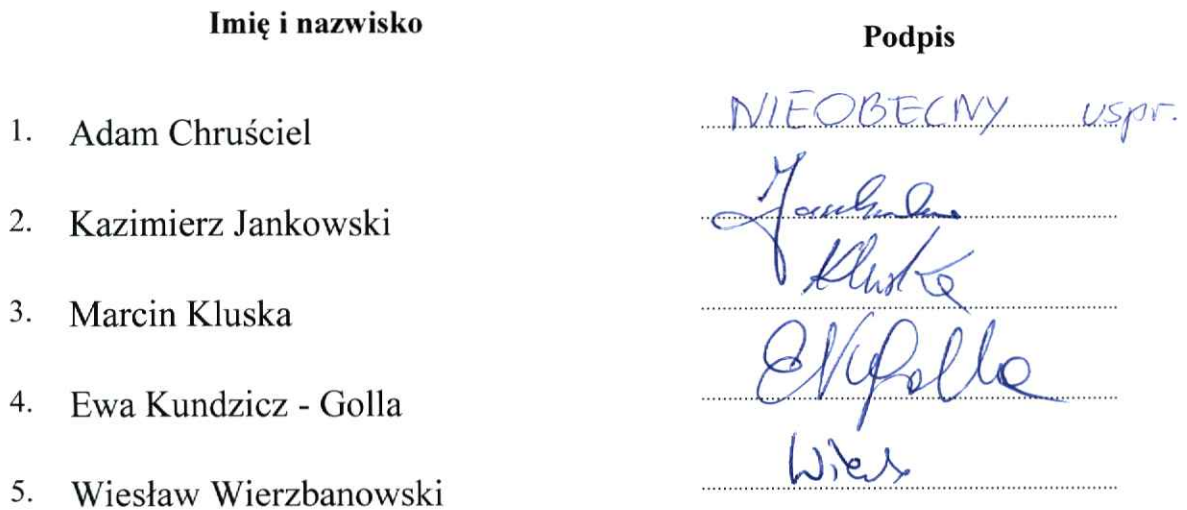 Imię i nazwisko Podpis
1. Adam Chruściel NIEOBECNY uspr.
2. Kazimierz Jankowski
3. Marcin Kluska Kluska
4. Ewa Kundzicz - Golla EKGolla
5. Wiesław Wierzbanowski